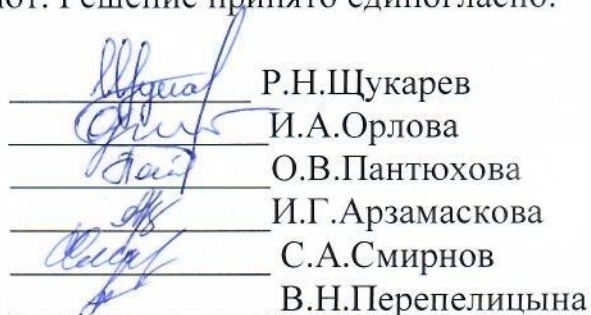 Решение принято единогласно.
Р.Н.Щукарев
И.А.Орлова
О.В.Пантюхова
И.Г.Арзамаскова
С.А.Смирнов
В.Н.Перепелицына